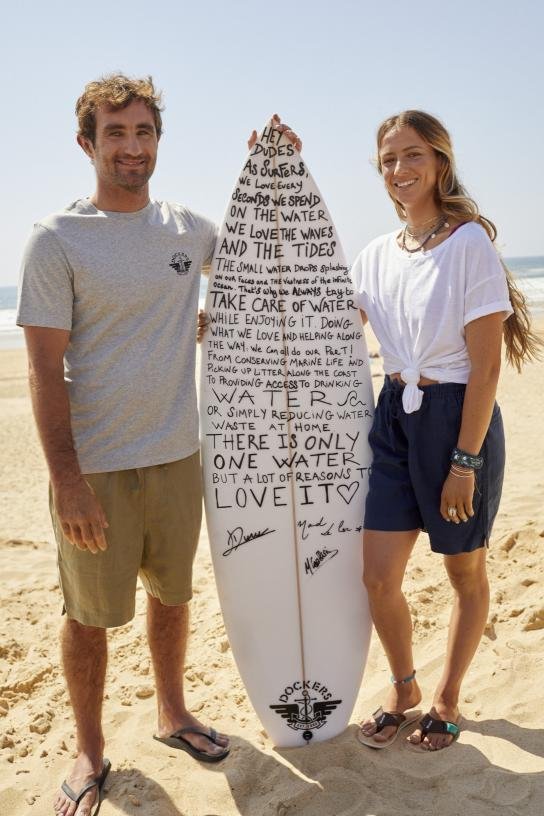 HEY
DUDES
AS SURFERS,
WE LOVE EVERY
SECONDS WE SPEND
ON THE WATER
WE LOVE THE WAVES
AND THE TIDES
THE SMALL WATER DROPS splashing
ON OUR FACES AND THE VASTNESS OF THE INFINITE
OCEAN. That's why we ALWAYS try to
TAKE CARE OF WATER
WHILE ENJOYING IT. DOING
WHAT WE LOVE AND HELPING ALONG
THE WAY. We can all do our PART!
FROM CONSERVING MARINE LIFE AND
PICKING UP LITTER ALONG THE COAST
TO PROVIDING ACCESS TO DRINKING
WATER
OR SIMPLY REDUCING WATER
WASTE AT HOME
THERE IS ONLY
ONE WATER
BUT A LOT OF REASONS TO
LOVE IT♡
DOCKERS
DOCKERS